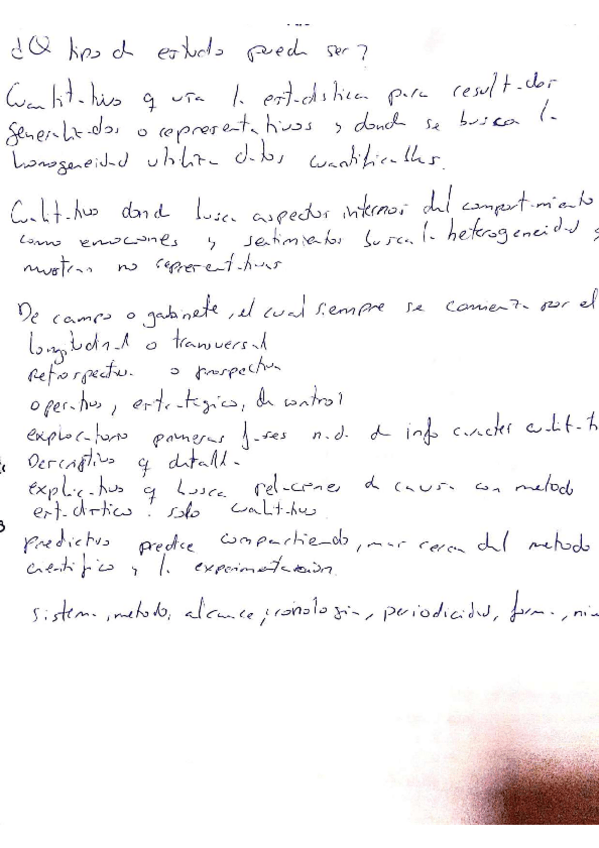 ¿Q tipo d estudo puede ser?
Cuantitativo q usa la estadistica para resultados
generalizados o representativos y donde se busca la
homogeneidad utiliza datos cuantificables.
Cualitativo donde busca aspectos internos del comportamiento
como emociones y sentimientos busca la heterogeneidad y
muestras no representativas
De campo o gabinete, el cual siempre se comienza por el
longitudinal o transversal
Retrospectivo o prospectiva
operativo, estrategico, de control
exploratorio primeras fases n.d. d info caracter cualitati
Descriptivo q detalla
explicativo q busca relaciones d causa con metodo
estadistico solo cualitativo
Predictivo predice mas cerca del metodo
cientifico y la experimentacion.
sistema, metodo, alcance, cronologia, periodicidad, forma,